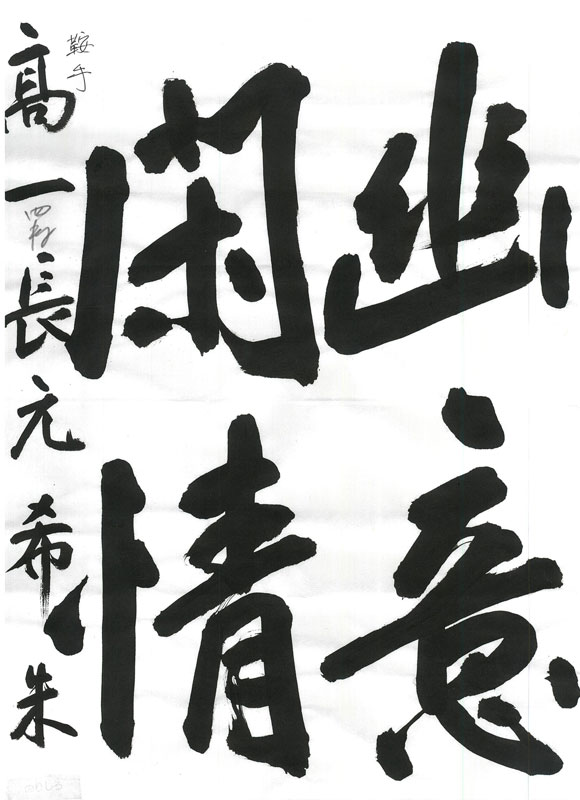 幽意
閑情
鞍手
高一長元希朱